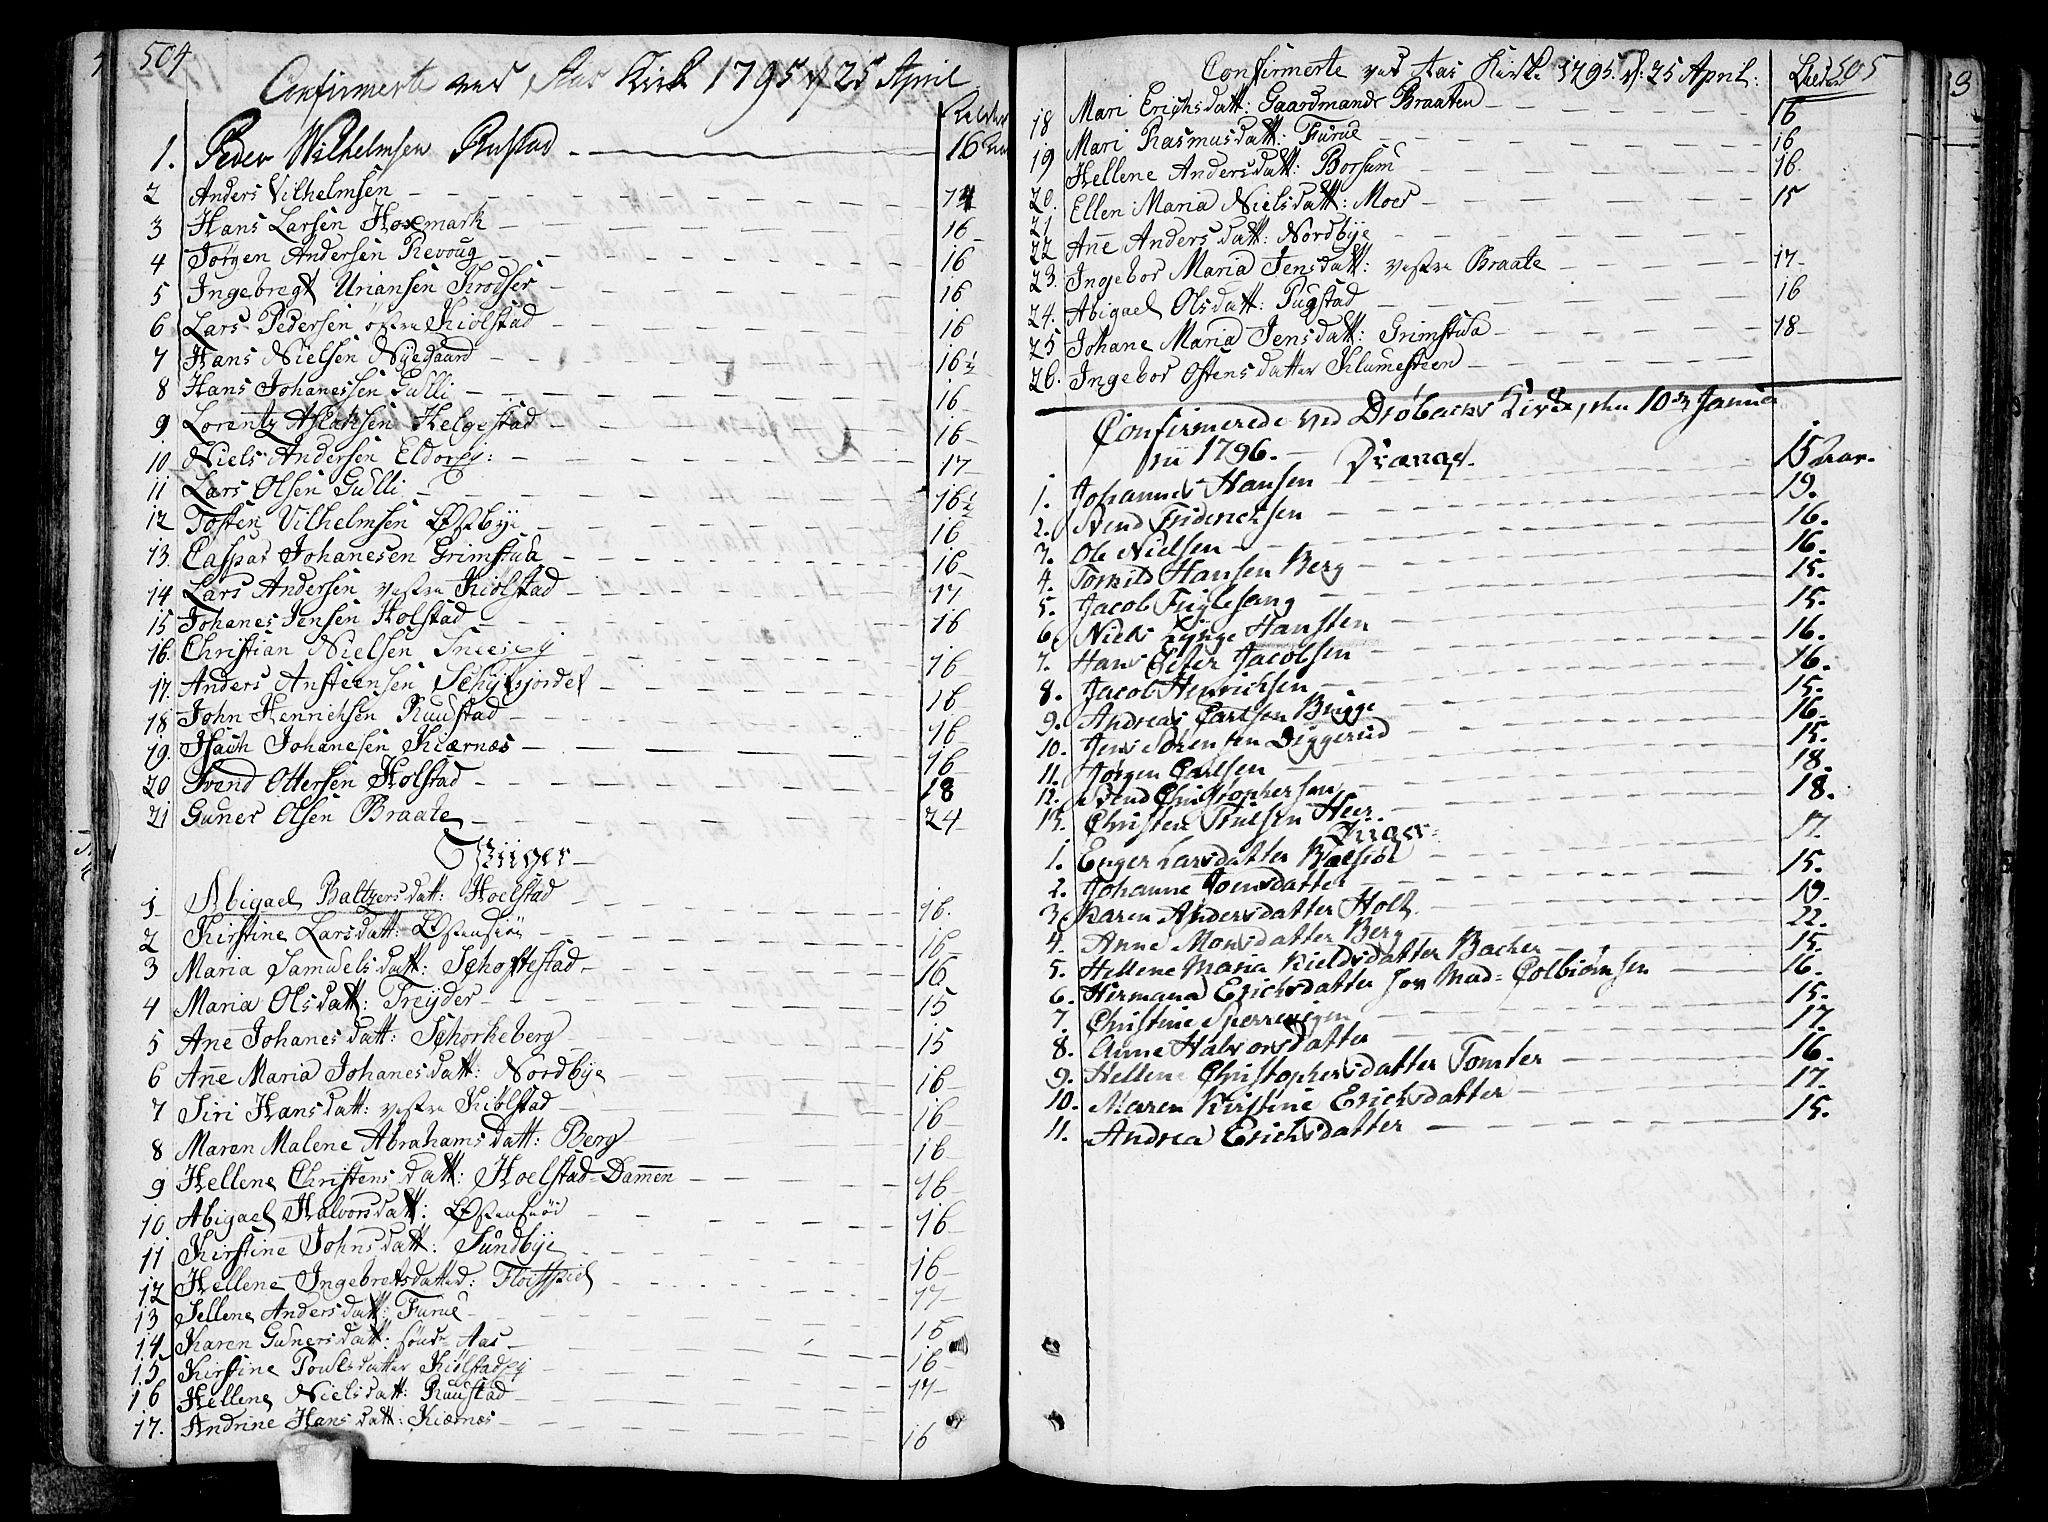 504
Confirmerte ved Aas Kirke 1795 d. 25 April
Alder
1. Peder Wilhelmsen Rustad — 16 Aar
2 Anders Vilhelmsen — 14
3 Hans Larsen Hoxmark — 16
4 Jørgen Andersen Revoug — 16
5 Ingebregt Uriansen Krodser — 16
6 Lars Pedersen østre Kiølstad — 16
7 Hans Nielsen Nyegaard — 16½
8 Hans Johanessen Gulli — 16
9 Lorentz Aslachsen Helgestad — 16
10 Niels Andersen Eldorej: — 17
11 Lars Olsen Gulli — 16½
12 Tosten Vilhelmsen Østbye — 16
13. Caspar Johanesen Grimstua — 16
14 Lars Andersen vestre Kiølstad — 17
15 Johanes Jensen Holstad — 16
16. Christian Nielsen — 16
17. Anders Ansteensen Schytsjordet — 16
18 John Henrichsen Ruustad — 16
19. Isach Johanesen Kiærnæs — 16
20 Svend Ottersen Holstad — 18
21 Guner Olsen Braate — 24
Piiger
1 Abigael Baltzersdatt: Hoelstad — 16.
2 Kirstine Larsdatt: Østensiøe — 16
3 Maria Samuelsdatt: Schoftestad — 16
4 Maria Olsdatt: Snyder — 15
5 Ane Johanesdatt: Schorkeberg — 15
6 Ane Maria Johanesdatt: Nordbye — 16
7 Siri Hansdatt: vestre Kiølstad — 16
8 Maren Malene Abrahamsdatt: Berg — 16
9 Hellene Christensdatt: Hoelstad-Damen — 16
10. Abigael Halvorsdatt: Østensiøe — 16
11 Kirstine Johnsdatt: Sundbye — 16
12 Hellene Ingebretsdatter: Fløitspiel — 17
13 Sellene Andersdatt: Furue — 16
14. Karen Gunersdatt: søndr Aas — 16
15. Kirstine Poulsdatter Kiølstadej — 17
16 Hellene Nielsdatt: Ruustad
17. Andrine Hansdatt: Kiærnæs — 16
505
Confirmerte ved Aas Kirke 1795. d: 25 April:
Alder
18 Mari Erichsdatt: Gaardmands Braaten — 16
19 Mari Rasmusdatt: Furue — 16
20. Hellene Andersdatt: Borsum — 16.
21 Ellen Maria Nielsdatt: Moer — 15
22 Ane Andersdatt: Nordbye
23. Ingebor Maria Jensdatt: vestre Braate — 17
24. Abigael Olsdatt: Pugstad — 16
25 Johane Maria Jensdatt: Grimstua — 18
26. Ingebor Ostensdatter Klumesteen
Confirmerede ved Drøbachs Kirke, den 10de Janua
rii 1796. — Drænge.
1. Johannes Hansen — 15 Aar.
2. Svend Friderichsen — 19.
3. Ole Nielsen — 16.
4. Torkild Hansen Berg — 16.
5. Jacob Fuglesang — 15.
6. Niels Lynge Hansten — 15.
7. Hans Peter Jacobsen — 16.
8. Jacob Henrichsen — 16.
9. Andreas Carlsen Brigge — 15.
10. Jens Sørensen Diggerud — 16.
11. Jørgen Carlsen — 15.
12. Svend Christophersen — 18.
13. Christen Truelsen Heer — 18.
Piiger
1. Enger Larsdatter — 17.
2. Johanne Joensdatter — 15.
3. Karen Andersdatter Holt. — 19.
4. Anne Monsdatter Berg — 22.
5. Hellene Maria Kieldsdatter Backer — 15.
6. Hermana Erichsdatter hos Mad= Colbiørnsen — 16.
7. Christine Sperrevigen — 15.
8. Anne Halvorsdatter — 17.
9. Hellene Christophersdatter Tomter — 16.
10. Maren Kirstine Erichsdatter — 17.
11. Andrea Erichsdatter — 15.